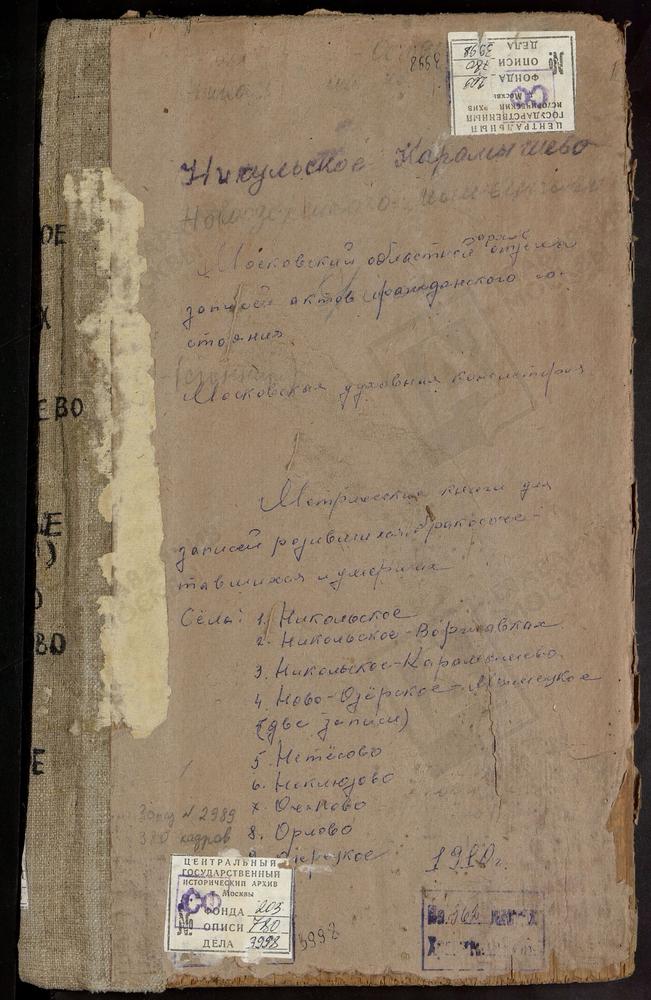 ЦЕНТРАЛЬНЫЙ
ГОСУДАРСТВЕННЫЙ
ИСТОРИЧЕСКИЙ АРХИВ
г. Москвы
СФ
№
ФОНДА 203
ОПИСИ 780
ДЕЛА 3998
3998
Никульское Карамышево
Московский областной архив
записей актов гражданского со-
стояния
Московская духовная консистория
Метрические книги для
записей родившихся, бракосоче-
тавшихся и умерших
Сёла: 1. Никольское
2. Никольское-
3. Никольское-Карамышево
4. Ново-Озёрское-
(две записи)
5. Нетёсово
6. Неклюдово
7. Очаково
8. Орлово
9. Озерецкое
1910г.
Заказ № 2989
380 кадров
ЦЕНТРАЛЬНЫЙ
ГОСУДАРСТВЕННЫЙ
ИСТОРИЧЕСКИЙ АРХИВ
г. Москвы
СФ
№
ФОНДА 203
ОПИСИ 780
ДЕЛА 3998
3998
ОЕ
Х
ЕВО
ВО
Е